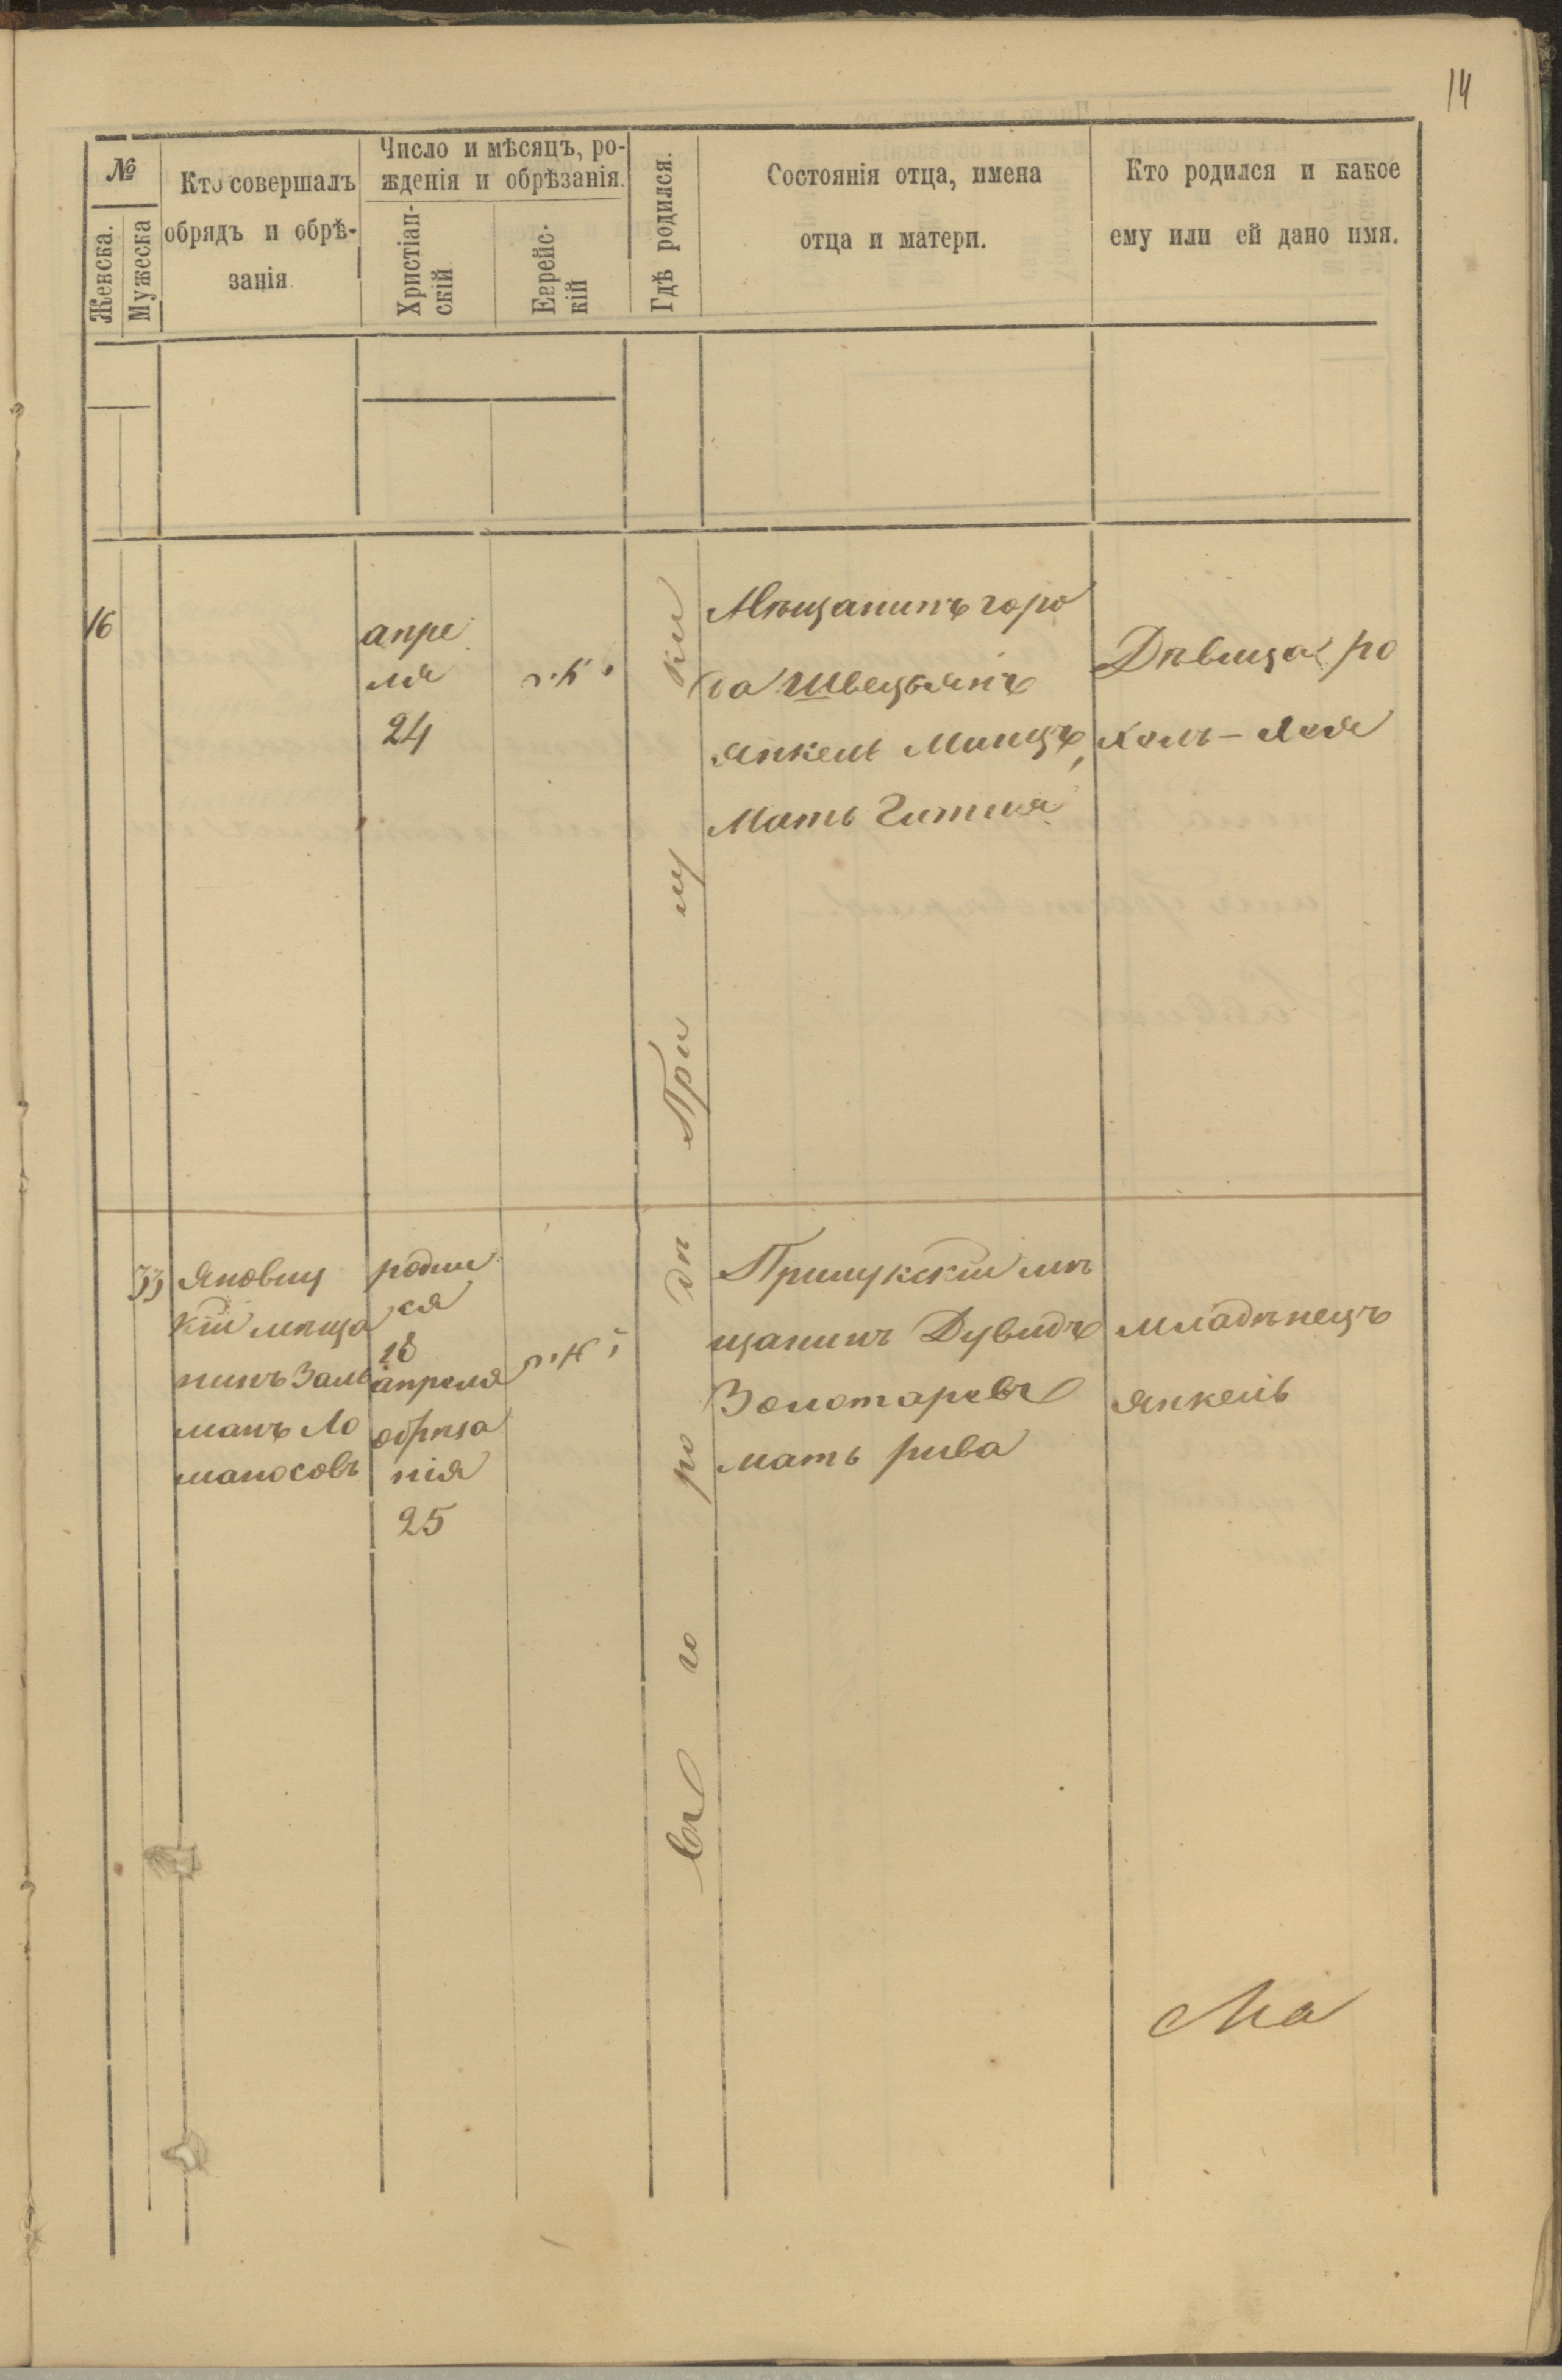 14
№
Женска.
Мужеска
Кто совершалъ
обрядъ и обрѣ-
занія
Число и мѣсяцъ, ро-
жденія и обрѣзанія.
Христіан-
скій
Еврейс-
кій
Гдѣ родился.
Состоянія отца, имена
отца и матери.
Кто родился и какое
ему или ей дано имя.
16
апре
ля
24
Мѣщанинъ горо
да Швецьянъ
Янкель Минцъ,
Мать Гитля
Дѣвица ро
холь-Лея
Въ го ро дѣ При лу ки
33
Яновиц
кій мѣща
нинъ Заль
манъ Ло
маносовъ
родил
ся
18
апреля
обрѣза
нія
25
Прилукскій мѣ
щанинъ Дувидъ
Золотаревъ
мать рива
младѣнецъ
Янкель
Ма